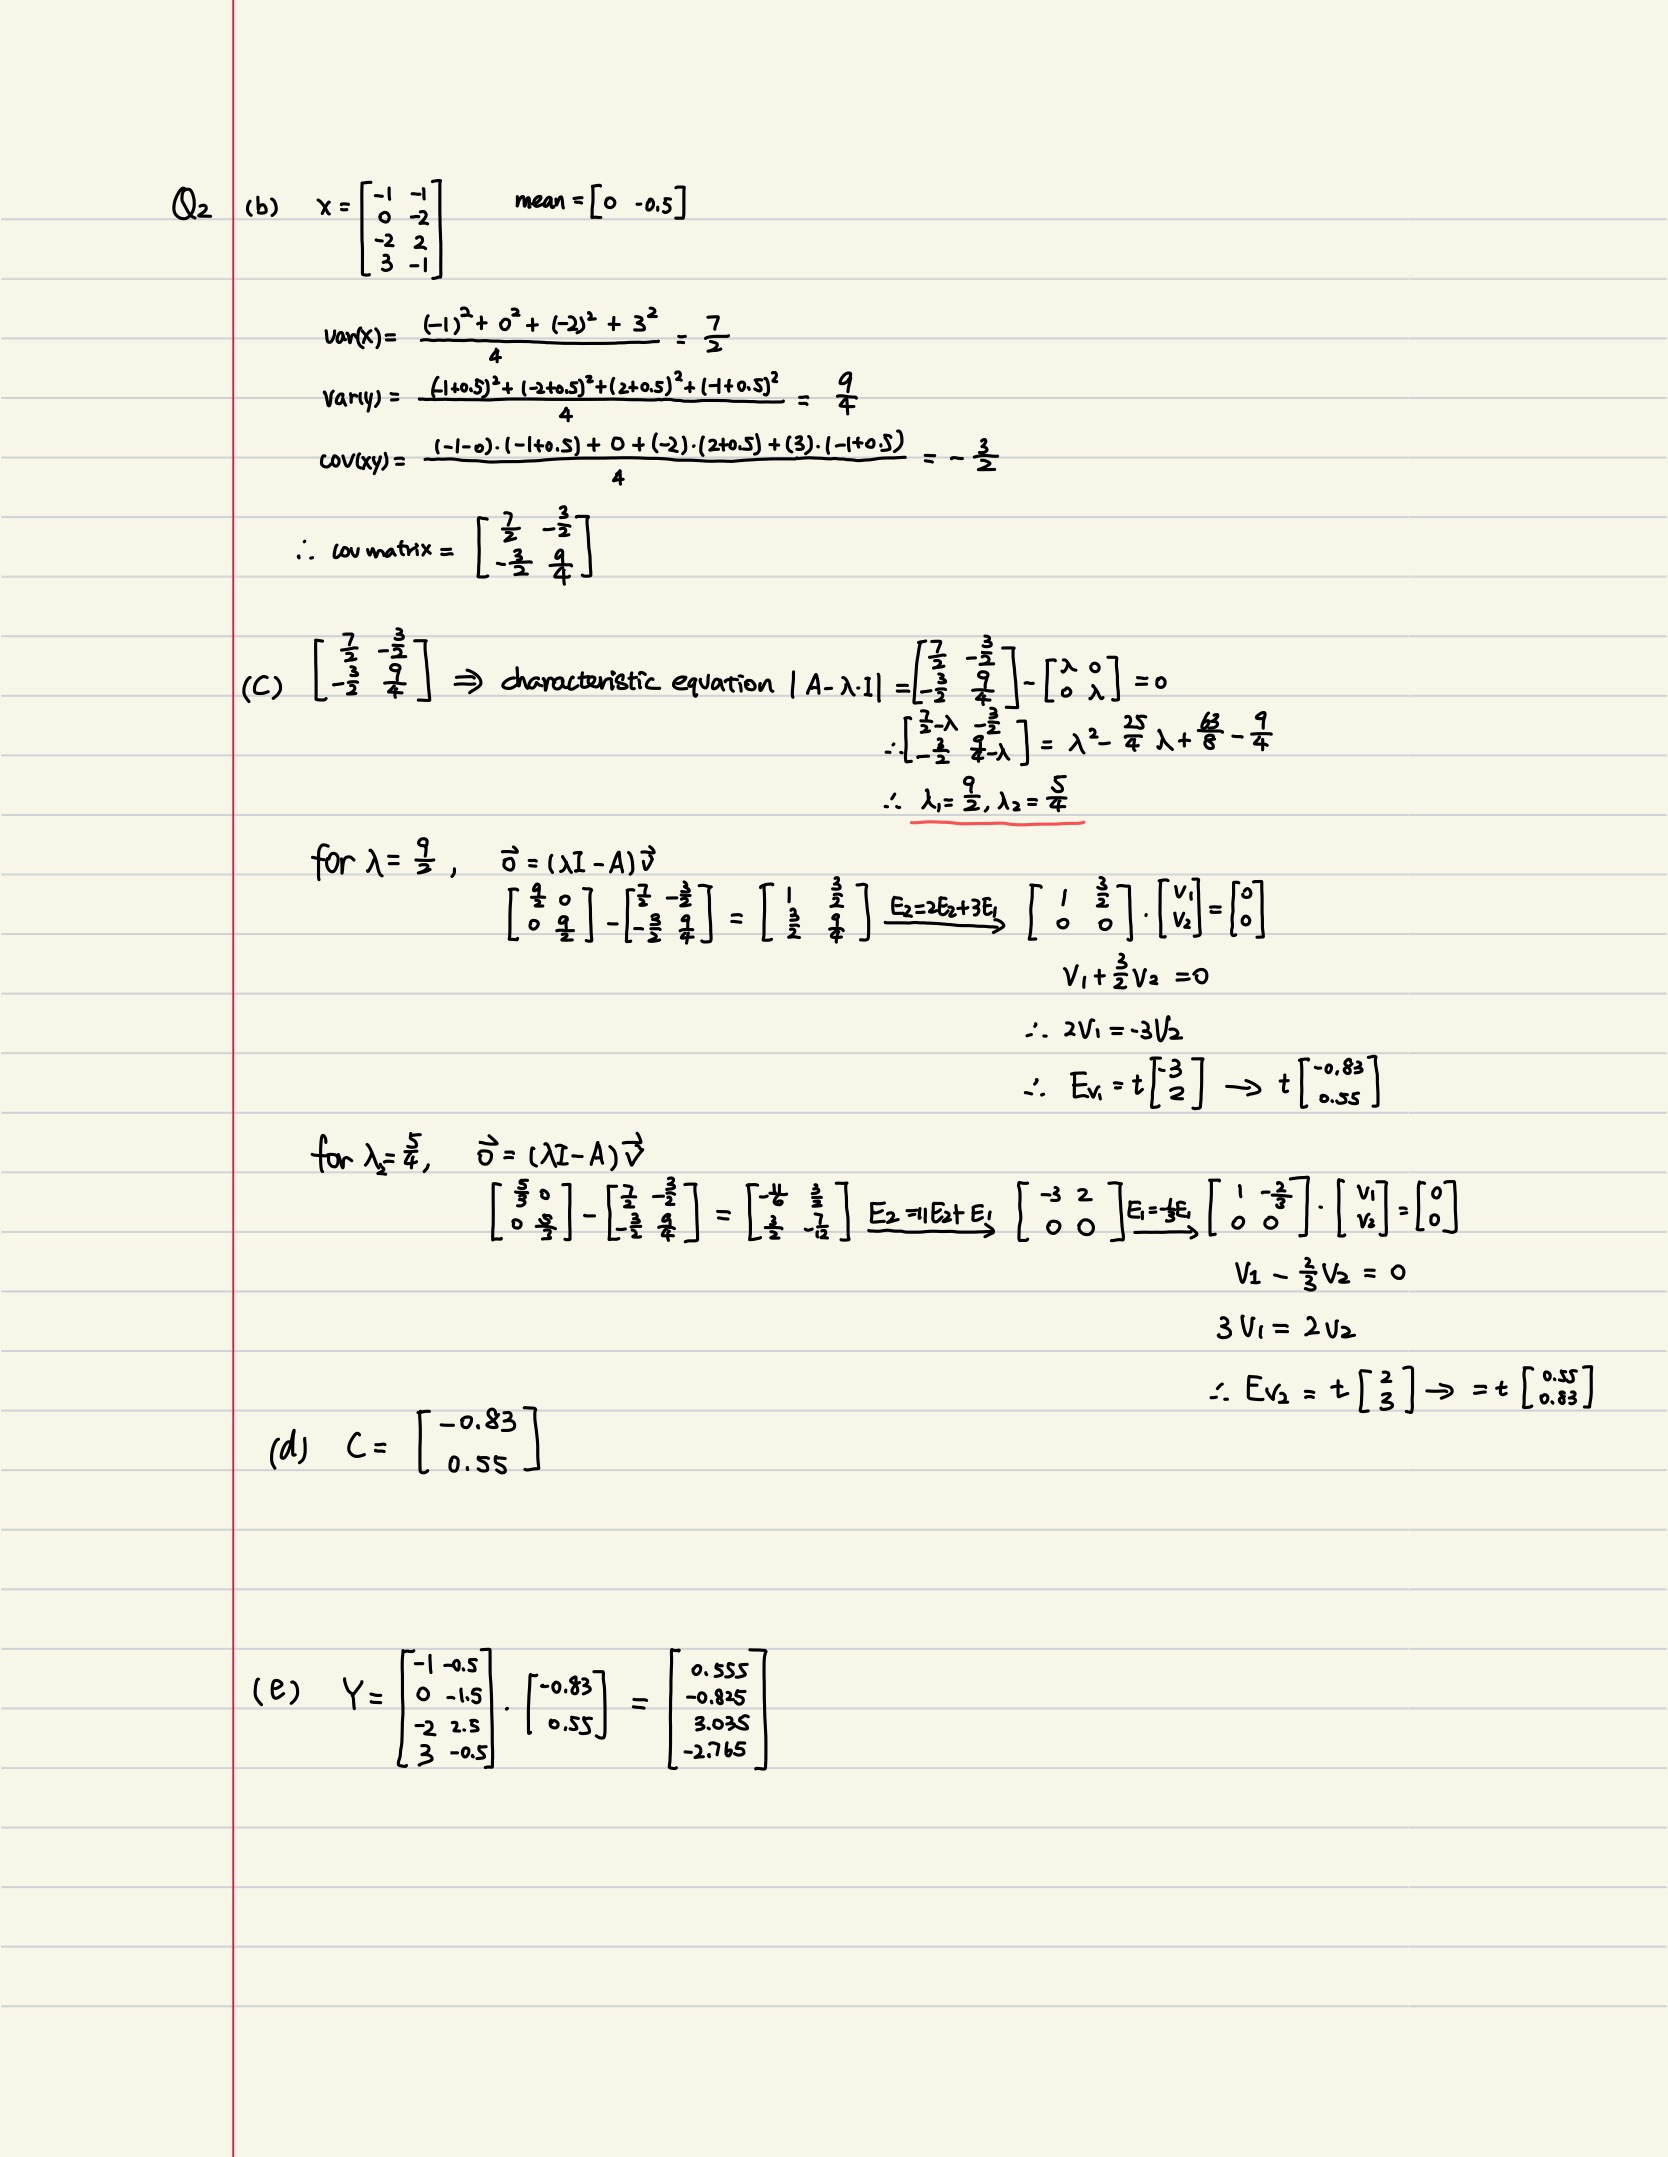 Q2 (b) x = [-1 -1; 0 -2; -2 2; 3 -1] mean = [0 -0.5]
var(x) = ((-1)² + 0² + (-2)² + 3²)/4 = 7/2
var(y) = ((-1+0.5)² + (-2+0.5)² + (2+0.5)² + (-1+0.5)²)/4 = 9/4
cov(xy) = ((-1-0)·(-1+0.5) + 0 + (-2)·(2+0.5) + (3)·(-1+0.5))/4 = -3/2
∴ cov matrix = [7/2 -3/2; -3/2 9/4]
(C) [7/2 -3/2; -3/2 9/4] ⇒ characteristic equation |A-λ·I| = [7/2 -3/2; -3/2 9/4] - [λ 0; 0 λ] = 0
∴ [7/2-λ -3/2; -3/2 9/4-λ] = λ² - 25/4 λ + 63/8 - 9/4
∴ λ₁ = 9/2, λ₂ = 5/4
for λ = 9/2, 0⃗ = (λI - A)v⃗
[9/2 0; 0 9/2] - [7/2 -3/2; -3/2 9/4] = [1 3/2; 3/2 9/4] E2=2E2+3E1 → [1 3/2; 0 0] · [V1; V2] = [0; 0]
V1 + 3/2 V2 = 0
∴ 2V1 = -3V2
∴ Ev₁ = t[-3; 2] → t[-0.83; 0.55]
for λ₂ = 5/4, 0⃗ = (λI - A)v⃗
[5/3 0; 0 5/3] - [7/2 -3/2; -3/2 9/4] = [-11/6 3/2; 3/2 -7/12] E2=11E2+E1 → [-3 2; 0 0] E1=-1/3E1 → [1 -2/3; 0 0] · [V1; V2] = [0; 0]
V1 - 2/3 V2 = 0
3V1 = 2V2
∴ Ev₂ = t[2; 3] → = t[0.55; 0.83]
(d) C = [-0.83; 0.55]
(e) Y = [-1 -0.5; 0 -1.5; -2 2.5; 3 -0.5] · [-0.83; 0.55] = [0.555; -0.825; 3.035; -2.765]